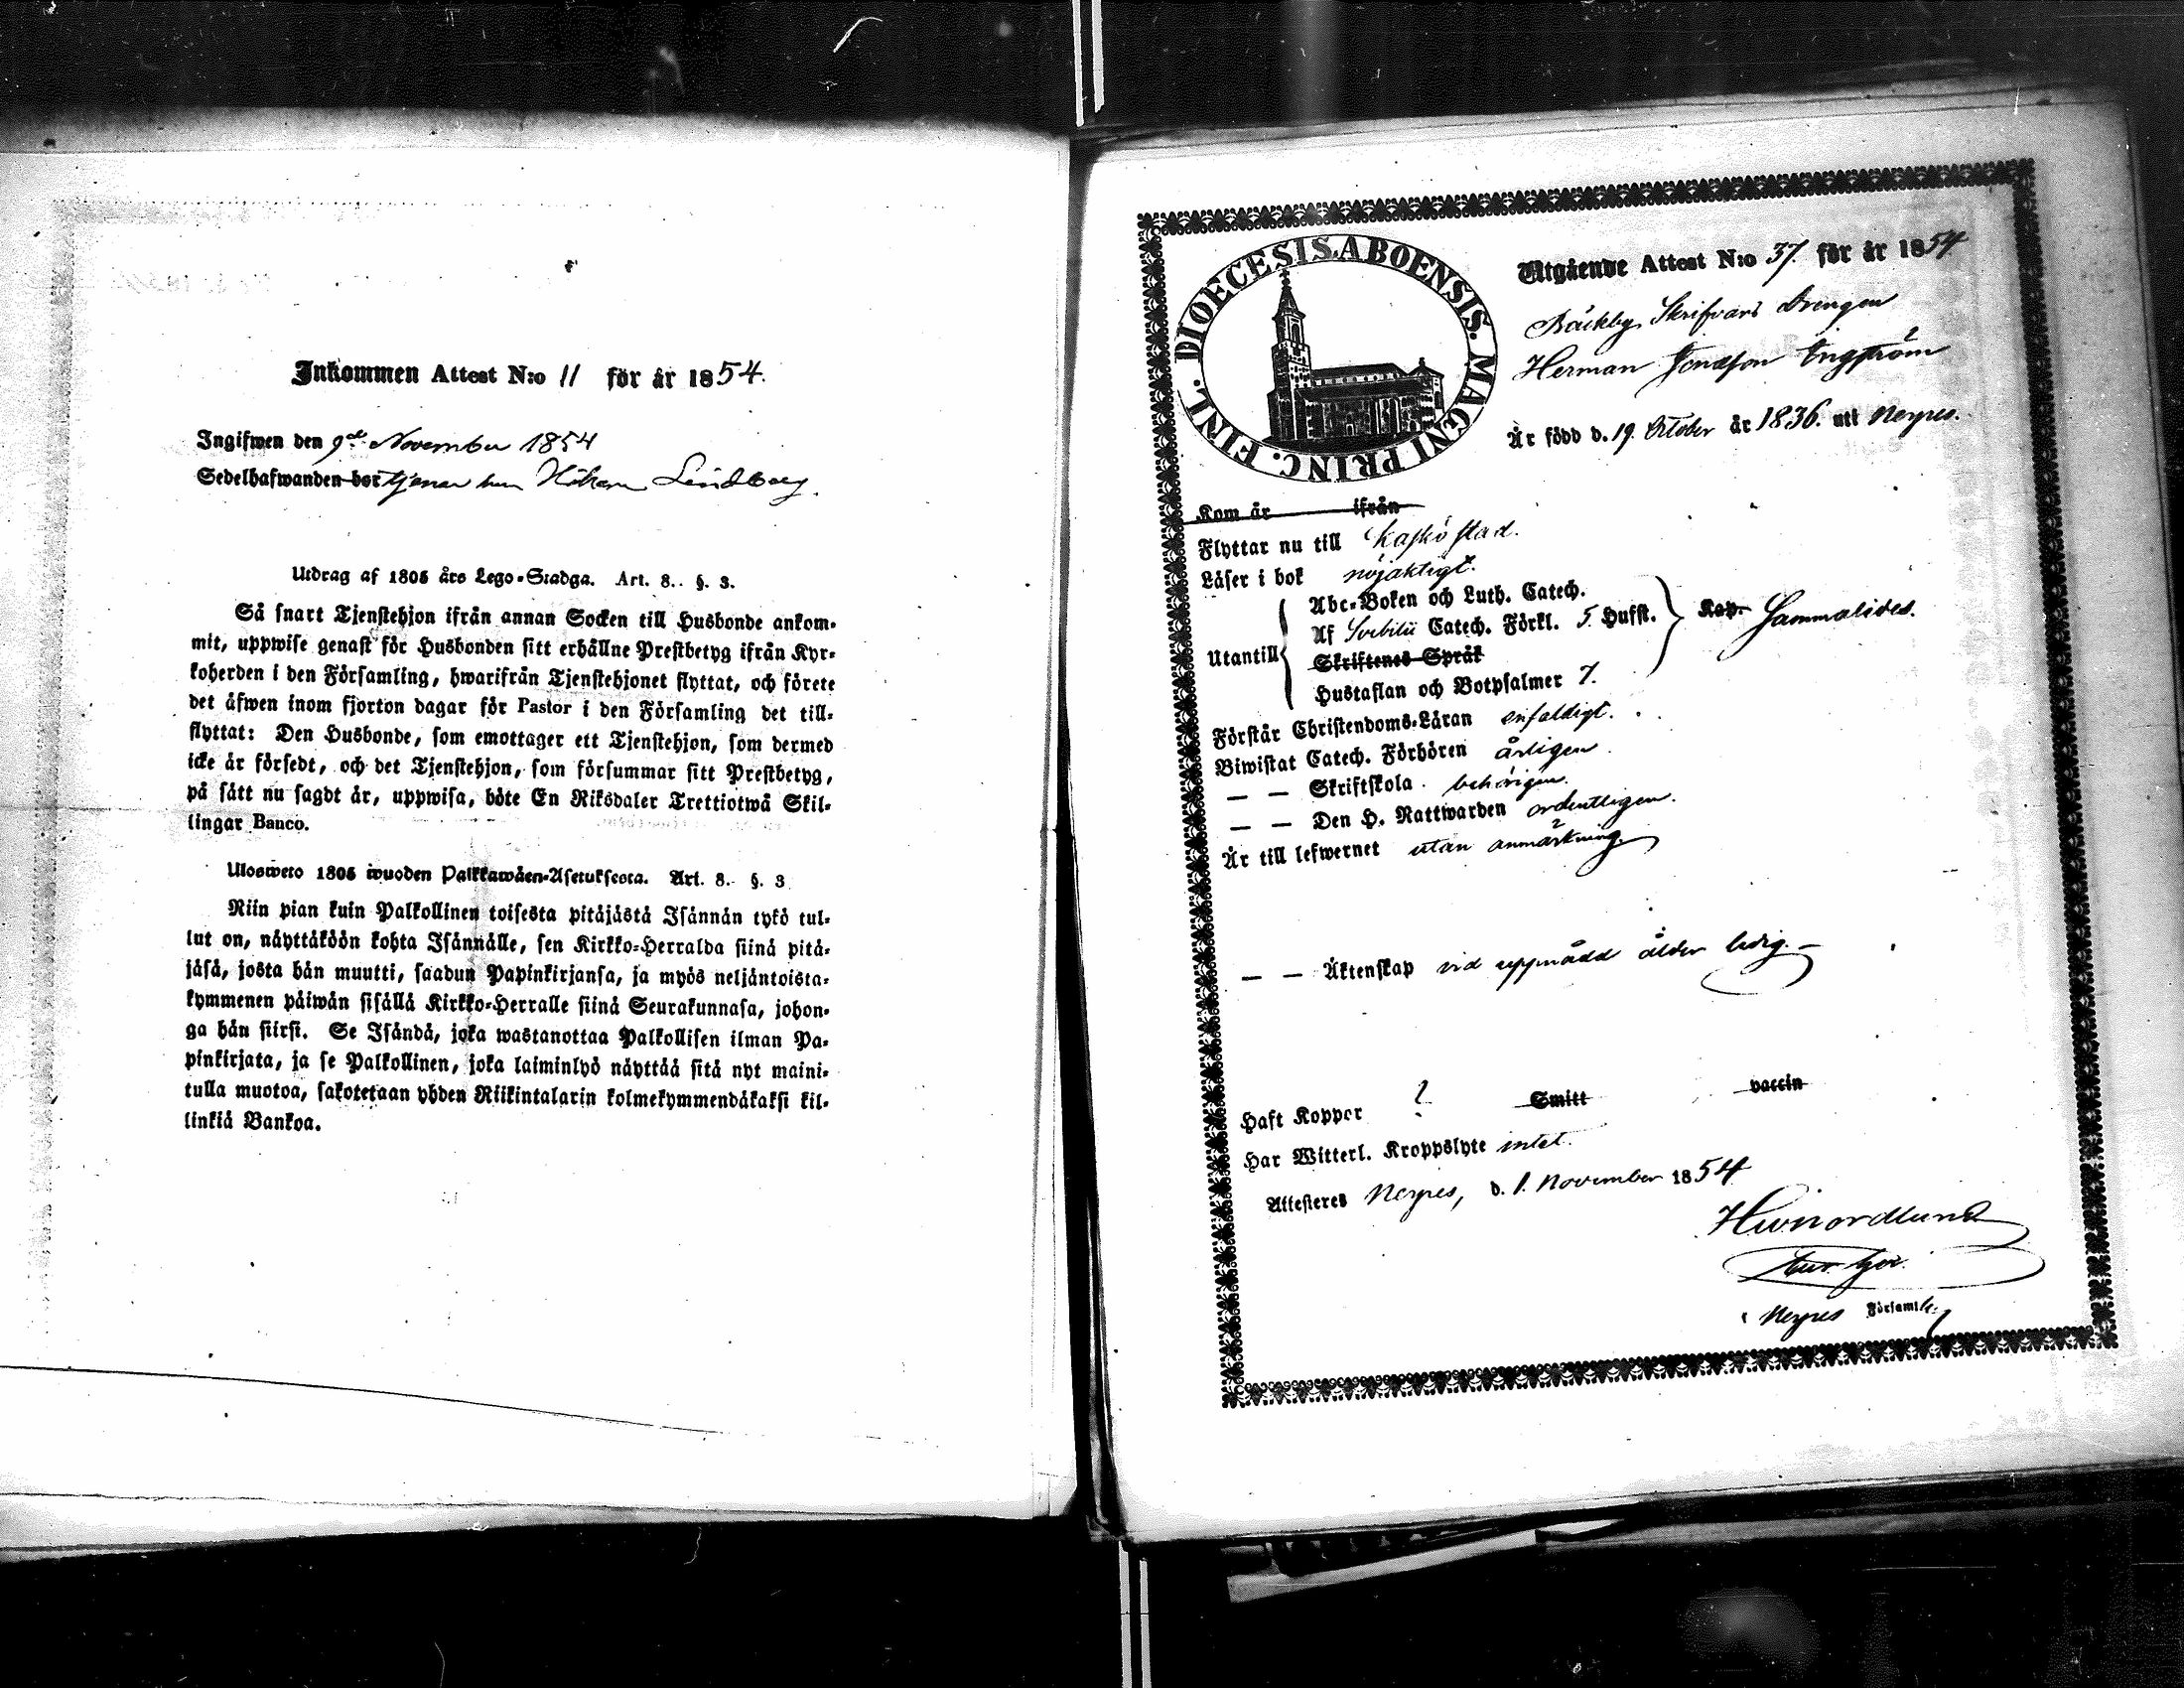 Inkommen Attest N:o 11 för år 1854.
Ingifwen den 9de November 1854
Sedelhafwanden bor tjenar hos Håkan Lindberg.
Utdrag af 1805 års Lego-Stadga. Art. 8. §. 3.
Så snart Tjenstehjon ifrån annan Socken till Husbonde ankom-
mit, uppwise genast för Husbonden sitt erhållne Prestbetyg ifrån Kyr-
koherden i den Församling, hwarifrån Tjenstehjonet flyttat, och förete
det äfwen inom fjorton dagar för Pastor i den Församling det till-
flyttat: Den Husbonde, som emottager ett Tjenstehjon, som dermed
icke är försedt, och det Tjenstehjon, som försummar sitt Prestbetyg,
på sätt nu sagdt är, uppwisa, böte En Riksdaler Trettiotwå Skil-
lingar Banco.
Ulosweto 1805 wuoden Palkkawäen-Asetuksesta. Art. 8. §. 3
Niin pian kuin Palkollinen toisesta pitäjästä Isännän tykö tul-
lut on, näyttäköön kohta Isännälle, sen Kirkko-Herralda siinä pitä-
jäsä, josta hän muutti, saadun Papinkirjansa, ja myös neljäntoista-
kymmenen päiwän sisällä Kirkko-Herralle siinä Seurakunnasa, johon-
ga hän siirsi. Se Isändä, joka wastanottaa Palkollisen ilman Pa-
pinkirjata, ja se Palkollinen, joka laiminlyö näyttää sitä nyt maini-
tulla muotoa, sakotetaan yhden Riikintalarin kolmekymmendäkaksi kil-
linkiä Bankoa.
DIOECESIS. ABOENSIS. MAGNI PRINC. FINL.
Utgående Attest N:o 37. för år 1854
Bäckby Skrifvars Drengen
Herman Jonasson Engström
Är född d. 19. October år 1836. uti Nerpes.
Kom år ifrån
Flyttar nu till Kaskö stad.
Läser i bok nöjaktigt.
Utantill
Abc-Boken och Luth. Catech.
Af Svebilii Catech. Förkl. 5. Hufst.
Kap. Sammalides.
Skriftenes Språk
Hustaflan och Botpsalmer 7.
Förstår Christendoms-Läran enfaldigt.
Biwistat Catech. Förhören årligen.
— — Skriftskola behörigen.
— — Den H. Nattwarden ordentligen.
Är till lefwernet utan anmärkning.
— — Äktenskap vid uppnådd ålder ledig. —
Haft Koppor ? Smitt vaccin
Har Witterl. Kroppslyte intet.
Attesteres Nerpes, d. 1. November 1854
Nerpes Församl:g